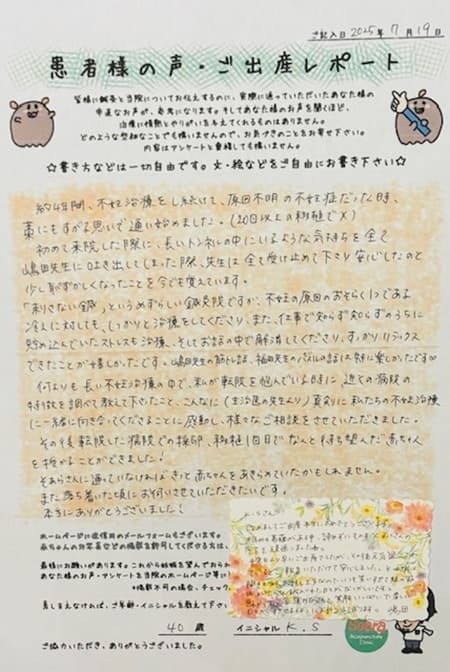 ご記入日 2025年 7月 19日
患者様の声・ご出産レポート
皆様に鍼灸と当院についてお伝えするのに、実際に通っていただいたあなた様の
率直なお声が、参考になります。そしてあなた様のお声を聞くほど、
治療に情熱とやりがいを与えてくれるものはありません。
どのような些細なことでも構いませんので、お気づきのことをお寄せ下さい。
内容はアンケートと重複しても構いません。
☆書き方などは一切自由です。文・絵などをご自由にお書き下さい☆
約4年間、不妊治療をし続けて、原因不明の不妊症だった時、
藁にもすがる思いで通い始めました。(10回以上の移植で×)
初めて来院した際に、長いトンネルの中にいるような気持ちを全て
嶋田先生に吐き出してしまった際、先生は全て受け止めて下さり安心したのと
少し恥ずかしくなったことを今でも覚えています。
「刺さない鍼」というめずらしい鍼灸院ですが、不妊の原因のおそらく1つである
冷えに対しても、しっかりと治療をしてくださり、また、仕事で知らず知らずのうちに
貯め込んでいたストレスも治療、そしてお話の中で解消してくださり、すっかりリラックス
できたことが嬉しかったです。嶋田先生の筋トレ話、福田先生のバトルの話は特に楽しかったです♡
何よりも長い不妊治療の中で、私が転院を悩んでいる時に近くの病院の
特徴を調べて教えて下さったこと、こんなに(主治医の先生より)真剣に私たちの不妊治療
に一緒に向き合ってくださることに感動し、様々なご相談をさせていただきました。
その後転院した病院での採卵、移植1回目でなんと待ち望んだ赤ちゃん
を授かることができました!
そあらさんに通っていなければきっと赤ちゃんをあきらめていたかもしれません。
また落ち着いた頃にお伺いさせていただきたいです。
本当にありがとうございました!
ホームページに返信用のメールフォームもございます。
赤ちゃんのお写真などの掲載を許可してくださる方は、
最後にお願いがあります。これから妊娠を望んでおられ
あなた様のお声・アンケートを当院のホームページ等に
※掲載不可の場合、チェック
差し支えなければ、ご年齢・イニシャルを教えて下さい
40 歳 イニシャル K.S
ご協力いただき、ありがとうございました。
Soara
Acupuncture
Clinic